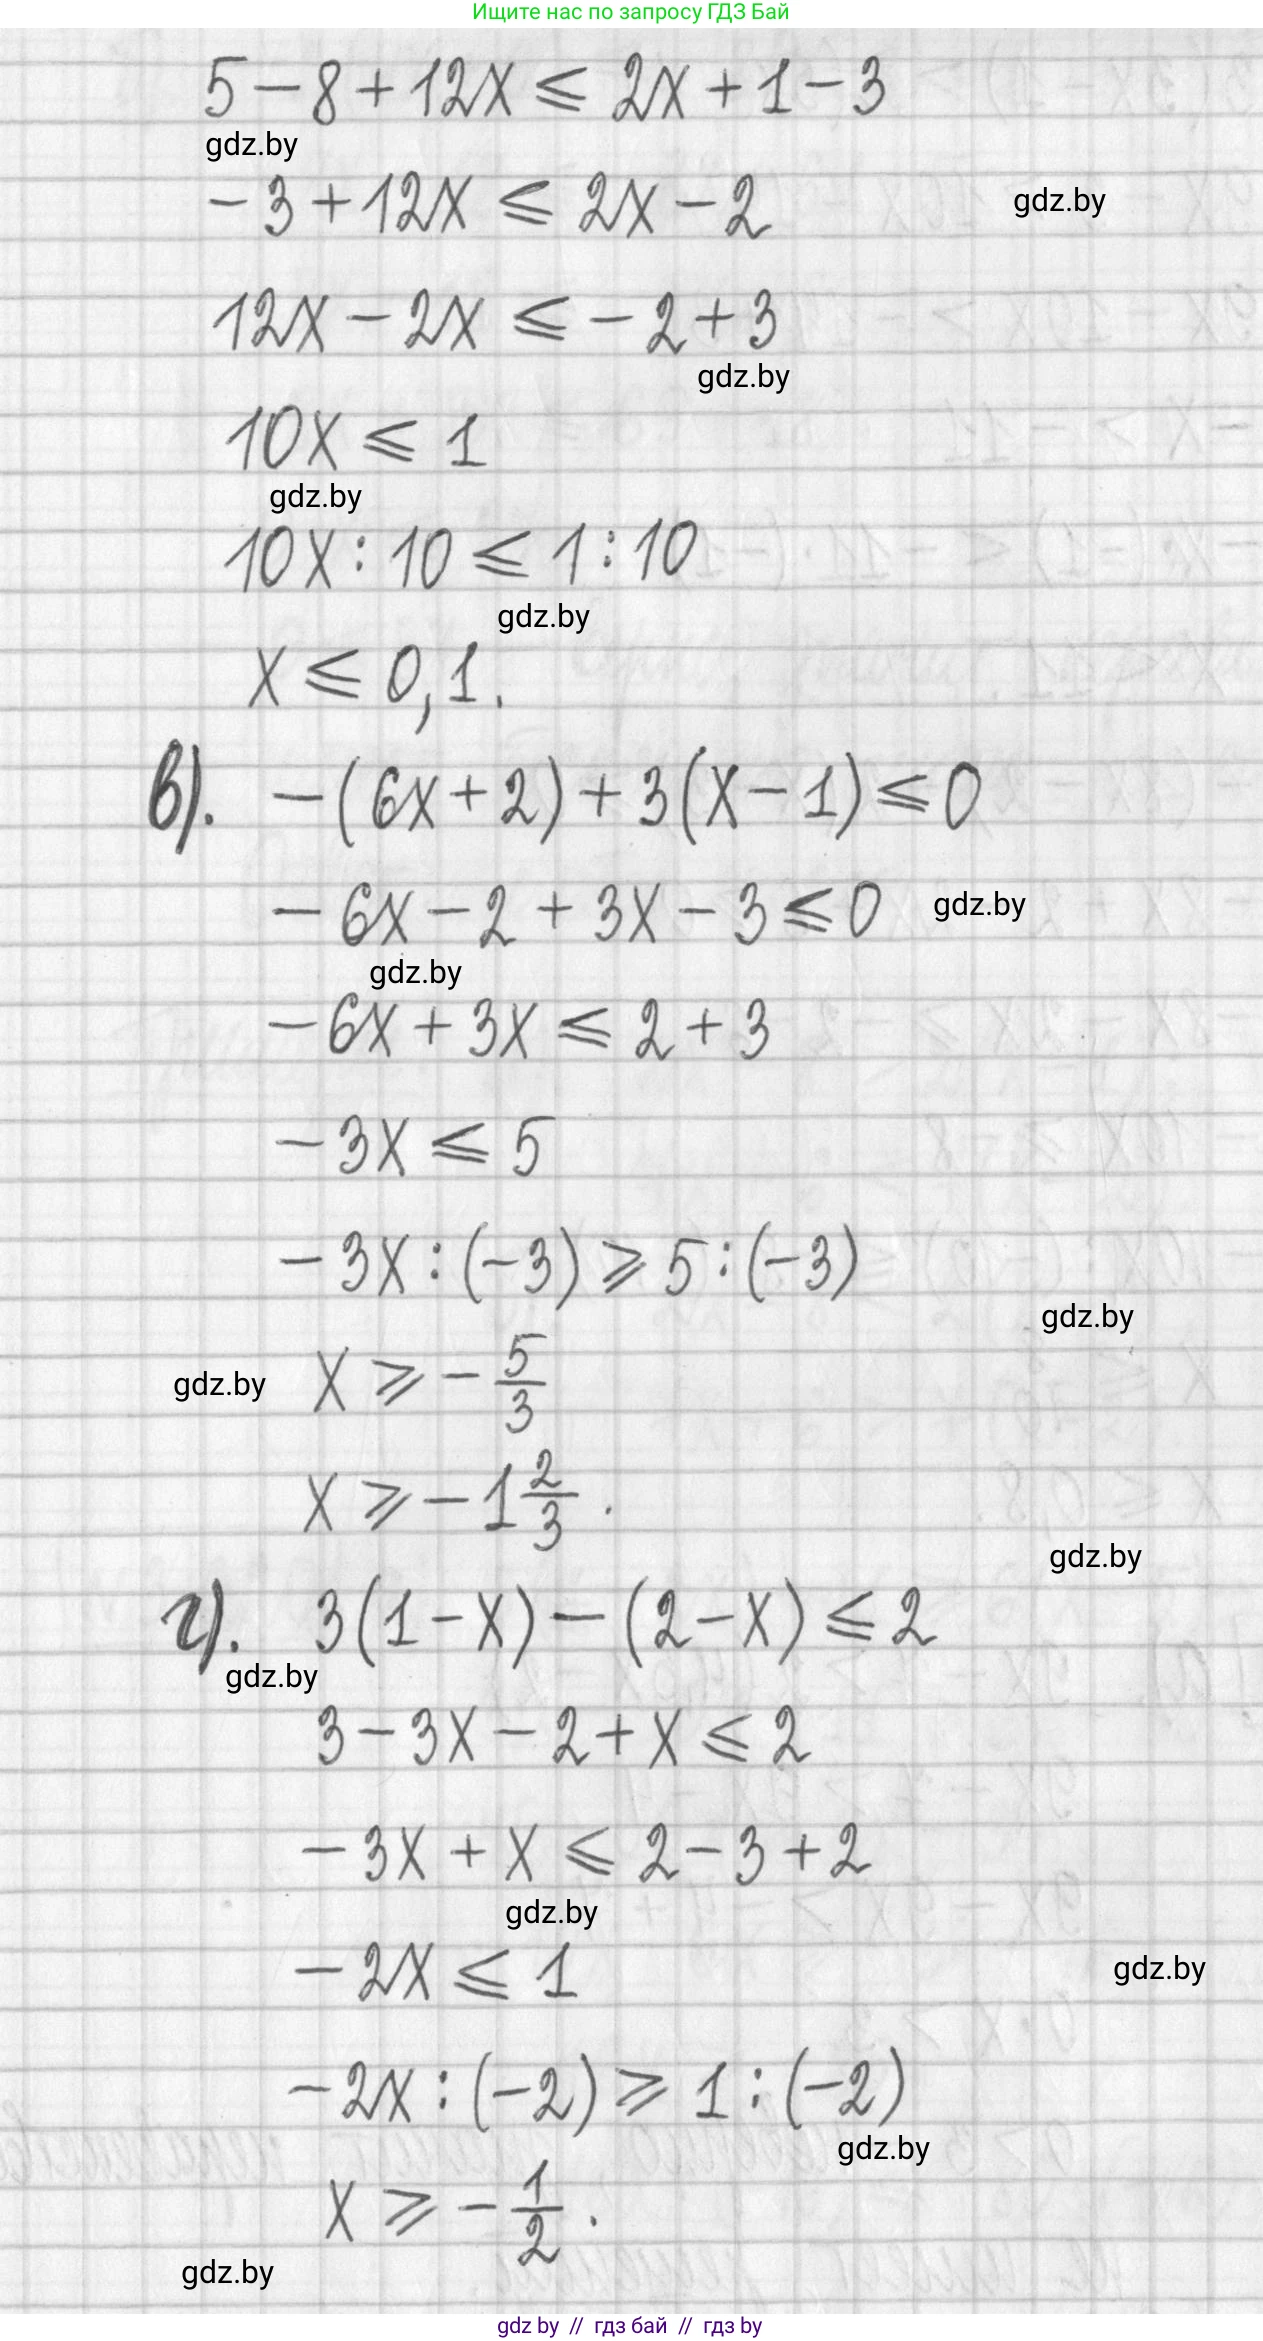 Ищите нас по запросу ГДЗ Бай
5 - 8 + 12x ⩽ 2x + 1 - 3
gdz.by
- 3 + 12x ⩽ 2x - 2
gdz.by
12x - 2x ⩽ - 2 + 3
gdz.by
10x ⩽ 1
gdz.by
10x : 10 ⩽ 1 : 10
gdz.by
x ⩽ 0,1.
в). - (6x + 2) + 3(x - 1) ⩽ 0
- 6x - 2 + 3x - 3 ⩽ 0
gdz.by
gdz.by
- 6x + 3x ⩽ 2 + 3
- 3x ⩽ 5
- 3x : (-3) ⩾ 5 : (-3)
gdz.by
gdz.by
x ⩾ - 5/3
x ⩾ - 1 2/3 .
gdz.by
г). 3(1 - x) - (2 - x) ⩽ 2
gdz.by
3 - 3x - 2 + x ⩽ 2
- 3x + x ⩽ 2 - 3 + 2
gdz.by
- 2x ⩽ 1
gdz.by
- 2x : (-2) ⩾ 1 : (-2)
gdz.by
x ⩾ - 1/2 .
gdz.by
gdz by // гдз бай // гдз by